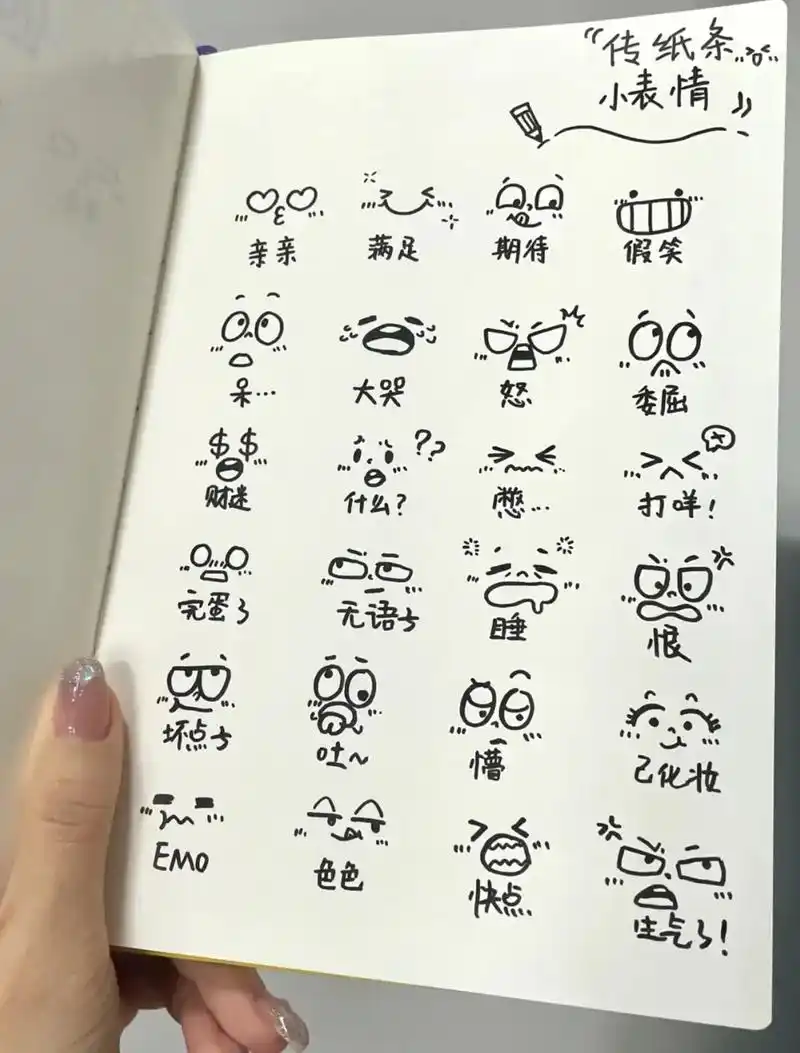 “传纸条
小表情”
亲亲 满足 期待 假笑
呆… 大哭 怒 委屈
$ $
??
财迷 什么? 憋… 打咩!
完蛋了 无语了 睡 恨
坏点了 吐~ 懵 已化妆
EMO 色色 快点 生气了!